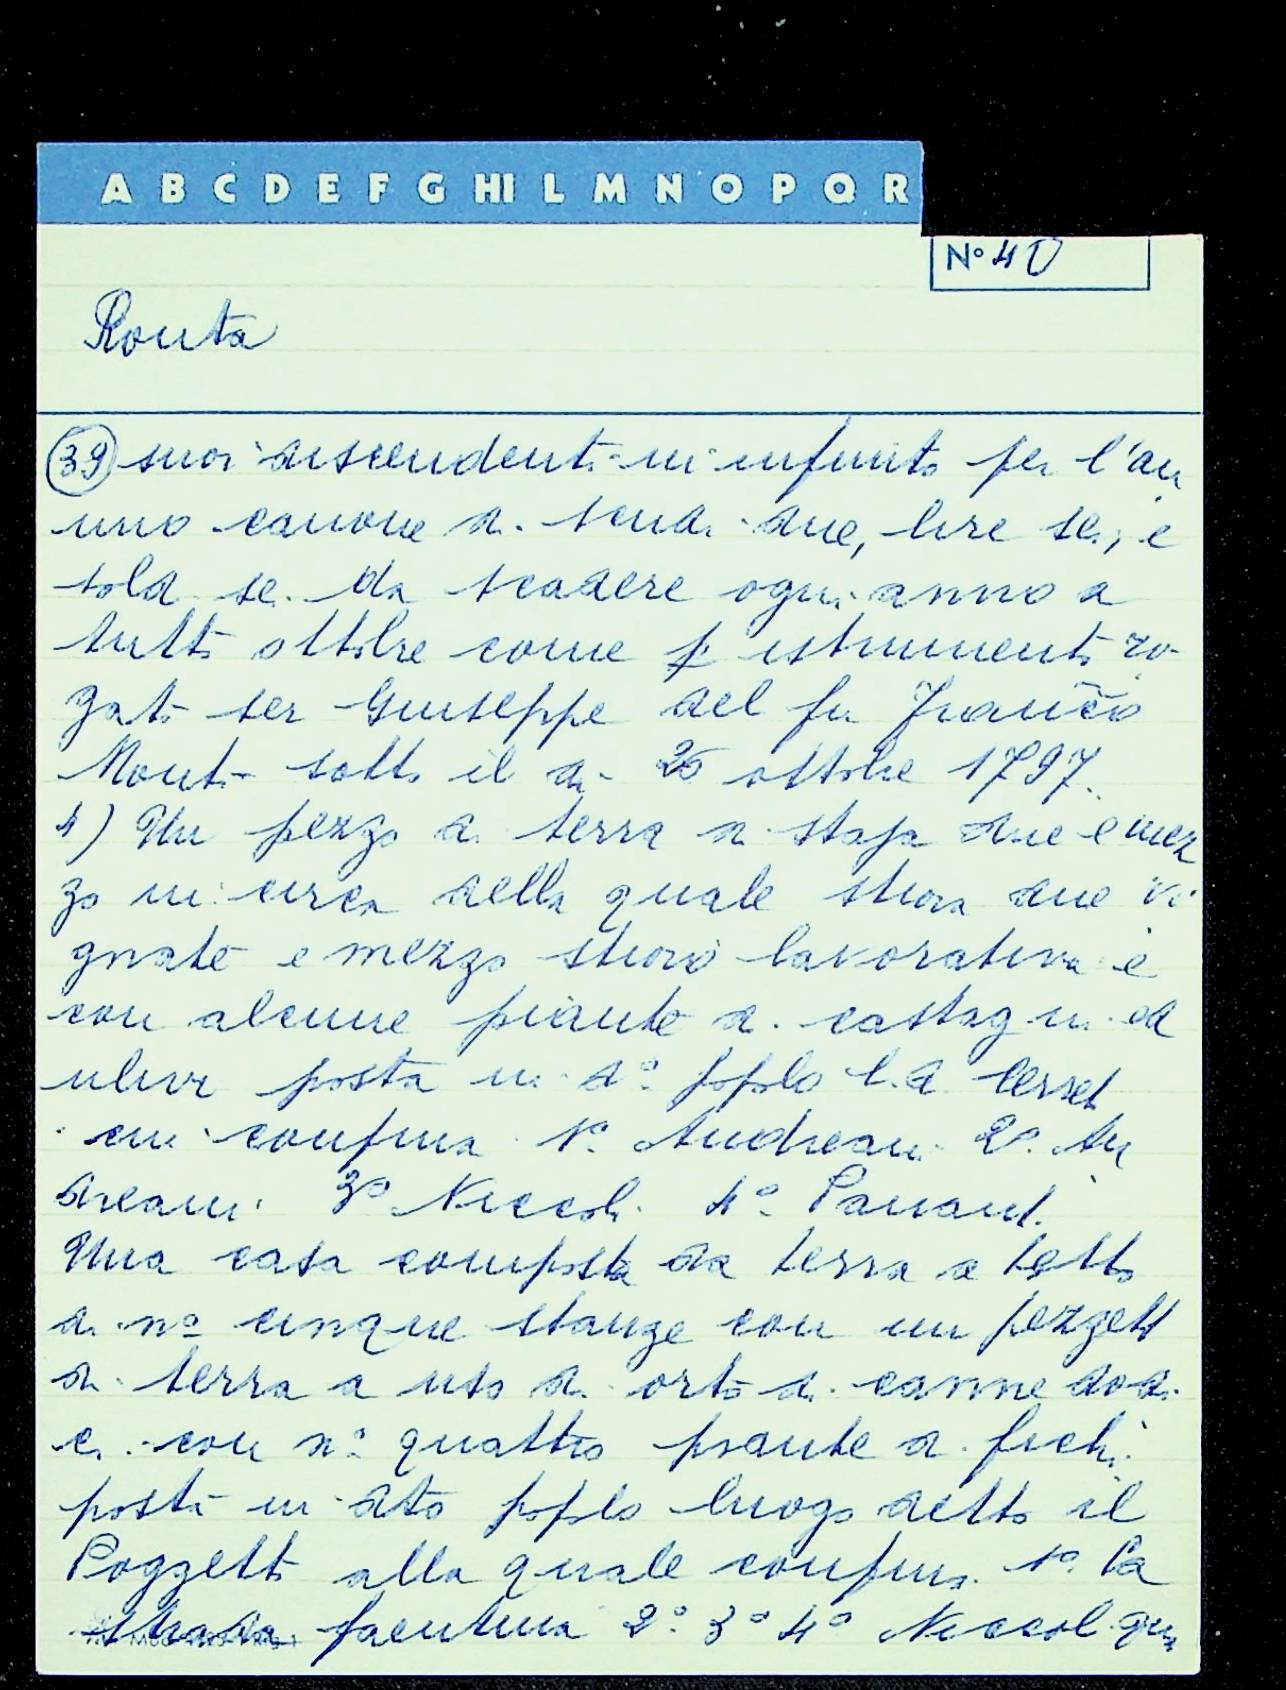 A B C D E F G HI L M N O P Q R
N° 40
Ronta
39 suoi discendenti in infinito per l'an
nuo canone di scudi due, lire sei, e
soldi sei da scadere ogni anno a
tutto ottobre come p istrumento ro-
gato ser Giuseppe del fu Franc̄o
Monti sotto il dì 26 ottobre 1797.
4) Un pezzo di terra di staja due e mez
zo in circa della quale stiora due vi
gnate e mezzo stioro lavorativa e
con alcune piante di castagni ed
ulivi posta in d° popolo l.d.
cui confina 1° Andreani 2° An
dreani 3° Niccoli 4° Pananti.
Una casa composta da terra a tetto
di n° cinque stanze con un pezzetto
di terra a uso di orto di canne dodi
ci con n° quattro piante di fichi
posta in dto popolo luogo detto il
Poggetto alla quale confina 1° la
strada 2° 3° 4° Niccoli